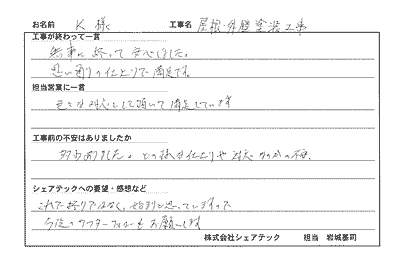 お名前 K 様 工事名 屋根・外壁塗装工事
工事が終わって一言
無事に終って安心しました。
思い通りの仕上りで満足です。
担当営業に一言
色々な対応をして頂いて満足しています
工事前の不安はありましたか
多少ありました。どの様な仕上りや対応なのかの不安。
シェアテックへの要望・感想など
これで終りではなく、始まりと思っていますので
今後のアフターフォローもお願いします
株式会社シェアテック 担当 岩城基司